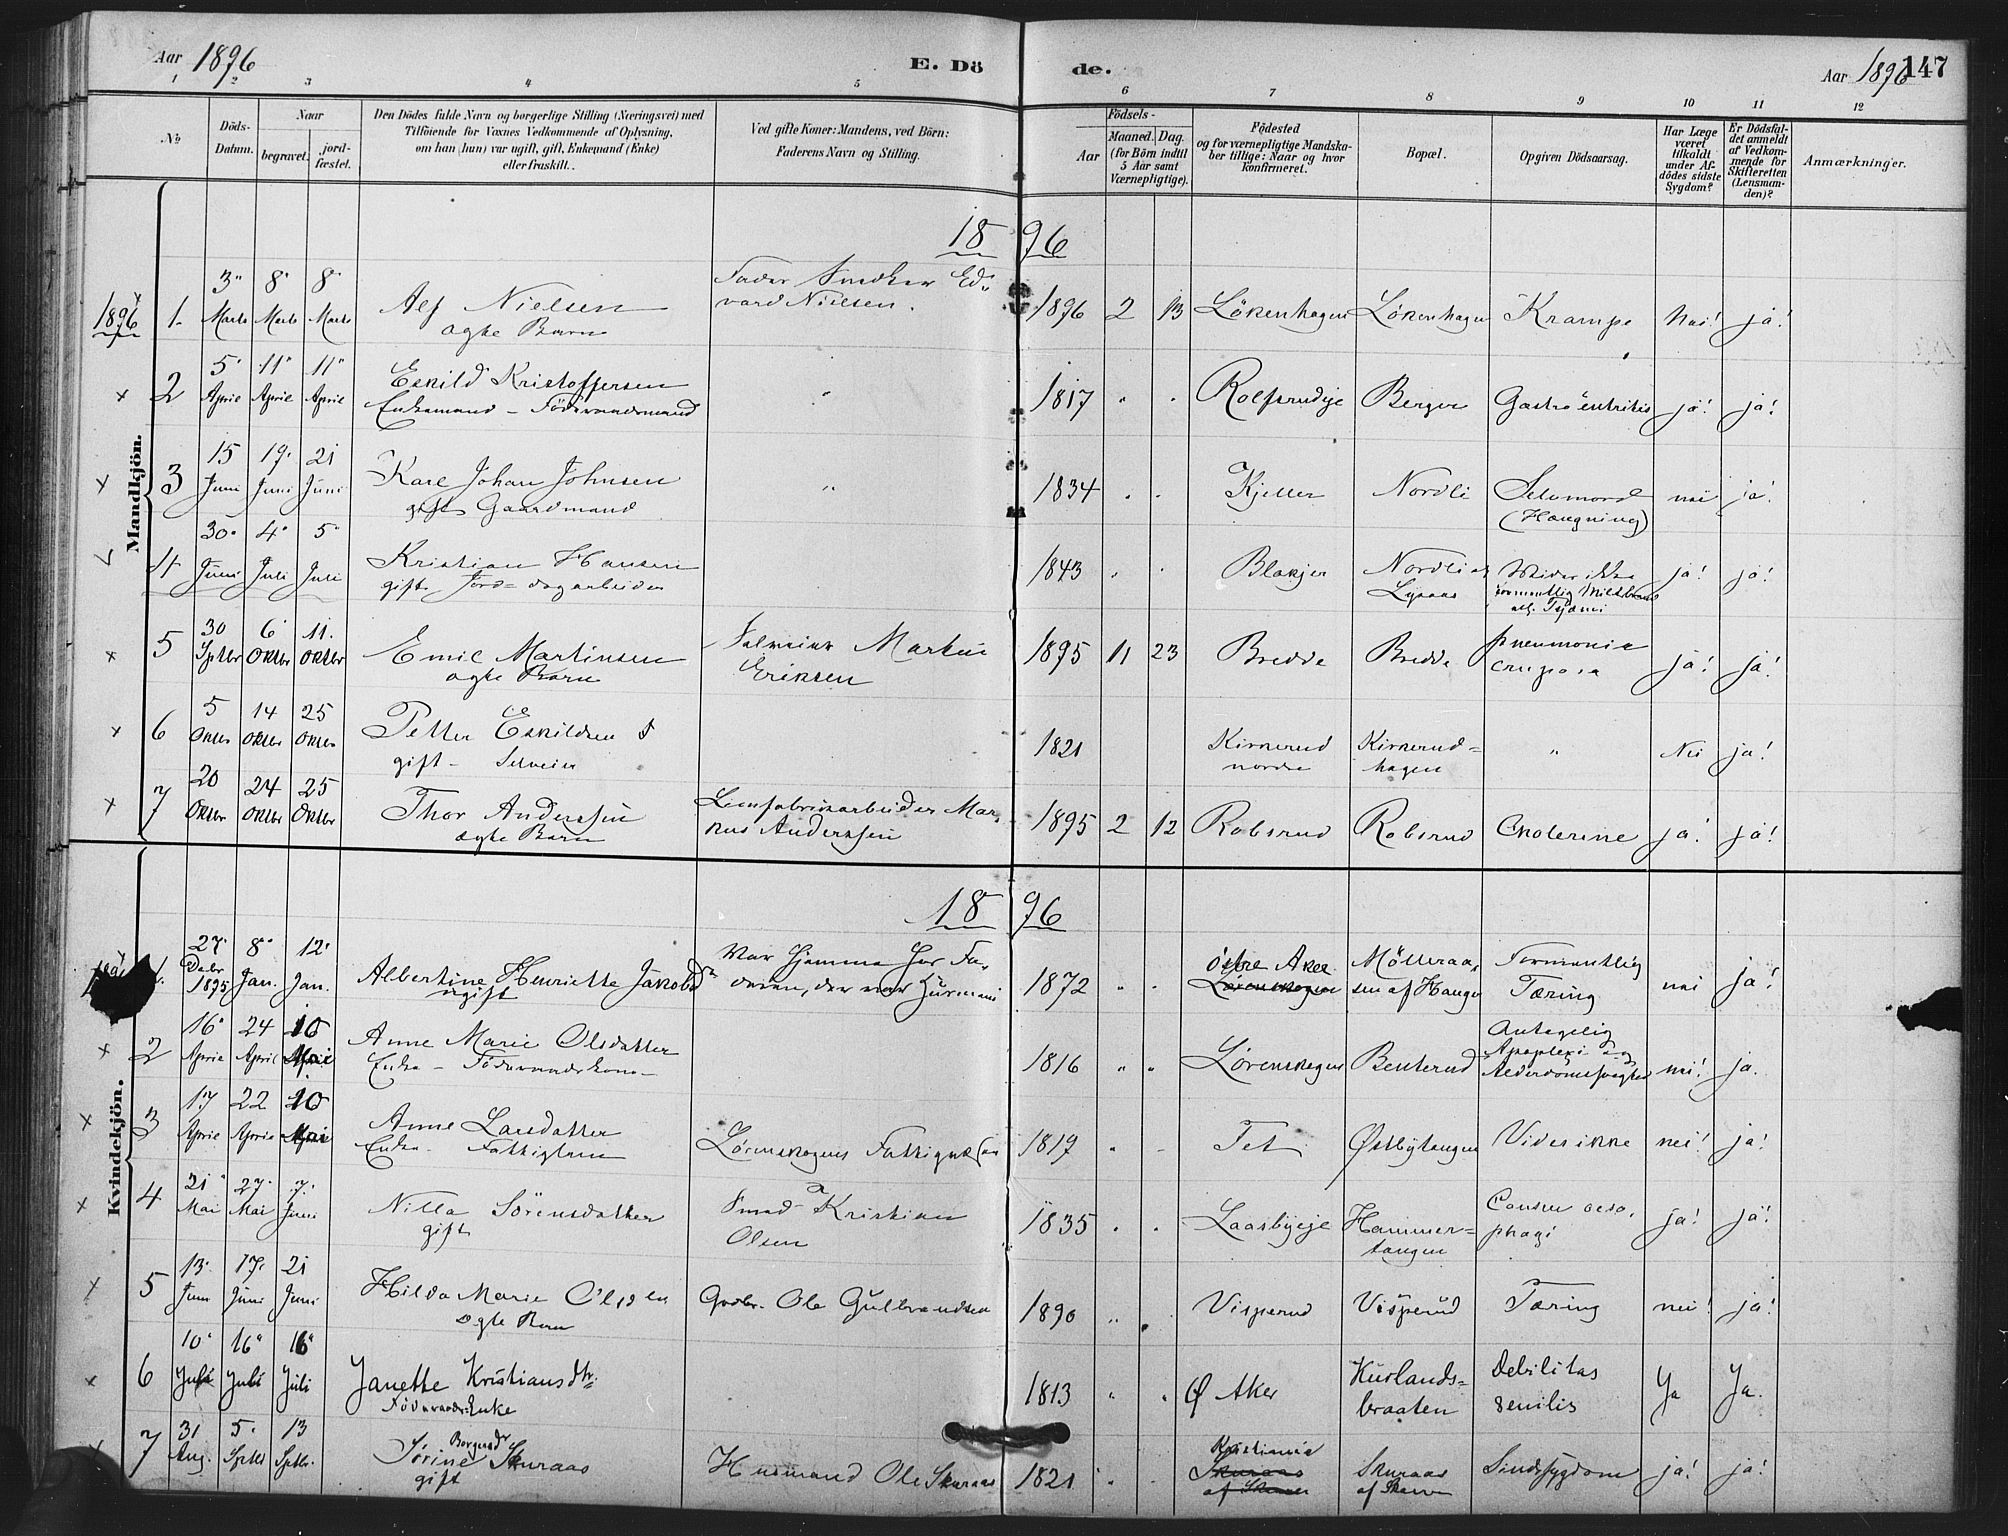 Aar 1896
E. Dö de.
Aar 1896 147
1 2 3 4 5 6 7 8 9 10 11 12
No
Döds-
Datum.
Naar
begravet.
jord-
fæstet.
Den Dödes fulde Navn og borgerlige Stilling (Næringsvei) med
Tilföiende for Voxnes Vedkommende af Oplysning,
om han (hun) var ugift, gift, Enkemand (Enke)
eller fraskilt.
Ved gifte Koner: Mandens, ved Börn:
Faderens Navn og Stilling.
Födsels-
Aar
Maaned. Dag.
(for Börn indtil
5 Aar samt
Værnepligtige).
Födested
og for værnepligtige Mandska-
ber tillige: Naar og hvor
konfirmeret.
Bopæl.
Opgiven Dödsaarsag.
Har Læge
været
tilkaldt
under Af-
dödes sidste
Sygdom?
Er Dödsfal-
det anmeldt
af Vedkom-
mende for
Skifteretten
(Lensman-
den)?
Anmærkninger.
Mandkjön.
18 96
1896
3 8 8 Fader Ed-
1. Marts Marts Marts Alf Nielsen vard Nielsen. 1896 2 13 Lökenhagen Lökenhagen Krampe Nei! ja!
ægte Barn
5 11 11 Eskild Kristoffersen
2 April April April Enkemand – Föderaadsmand " 1817 " " Berger ja! ja!
15 19 21 Karl Johan Johnsen
3 Juni Juni Juni gift Gaardmand " 1834 " " Kjeller Nordli Selvmord nei ja!
(Hængning)
30 4 5 Kristian Hansen
4 Juni Juli Juli gift 1843 " " Blakjer Nordli Vides ikke ja! ja!
30 6 11. Emil Martinsen Selveier 1895 11 23 Bredde Bredde pneumonia
5 Sptbr Oktbr Oktbr ægte Barn Eriksen cruposa ja! ja!
5 14 25 Petter Eskildsen
6 Oktbr Oktbr Oktbr gift – Selveier 1821 Kirkerud Kirkerud- " Nei ja!
nordre hagen
20 24 25 Thor Anderssen Limfabrikarbeider Mar-
7 Oktbr Oktbr Oktbr ægte Barn kus Anderssen 1895 2 12 Robsrud Robsrud Cholerine ja! ja!
Kvindekjön.
18 96
27 8 12 Var hjemme hos Fa- Østre Aker Formentlig
1. Decbr 1895 Jan. Jan. Albertine Henriette ugift deren, der var Husmand 1872 " " Lørenskogen af Hauger Tæring nei ja!
16 24 10 Anne Marie Olsdatter Antagelig
2 April April Mai Enke – Föderaadskone 1816 " " Lørenskogen Benterud Apoplexi og
Alderdomssvaghed nei! ja.
17 22 10 Anne Larsdatter
3 April April Mai Enke – Fattiglem Lörenskogens 1819 " " Tet Østbytangen Vides ikke nei! ja!
21 27 7 Nilla Sörensdatter Smed Kristian
4 Mai Mai Juni gift Olsen 1835 " " Laasbyeje Hammer-
tangen phagi ja! ja!
13 17 21 Hilda Marie Olsen Gdbr. Ole Gulbrandsen
5 Juni Juni Juni ægte Barn 1890 " " Visperud Visperud Tæring nei! ja!
10 16 16 Janette Kristiansdtr.
6 Juli Juli Juli Föderaads-Enke 1813 " " Ø Aker Kurlands-
braaten Debilitas
senilis Ja Ja.
31 5 13 Borgersdtr Kristiania
7 Aug. Sptbr Sptbr. Sörine Skuraas Husmand Ole Skuraas 1821 " " Skuraas Skuraas Sindssygdom ja! ja!
gift af Skarer af Skarer